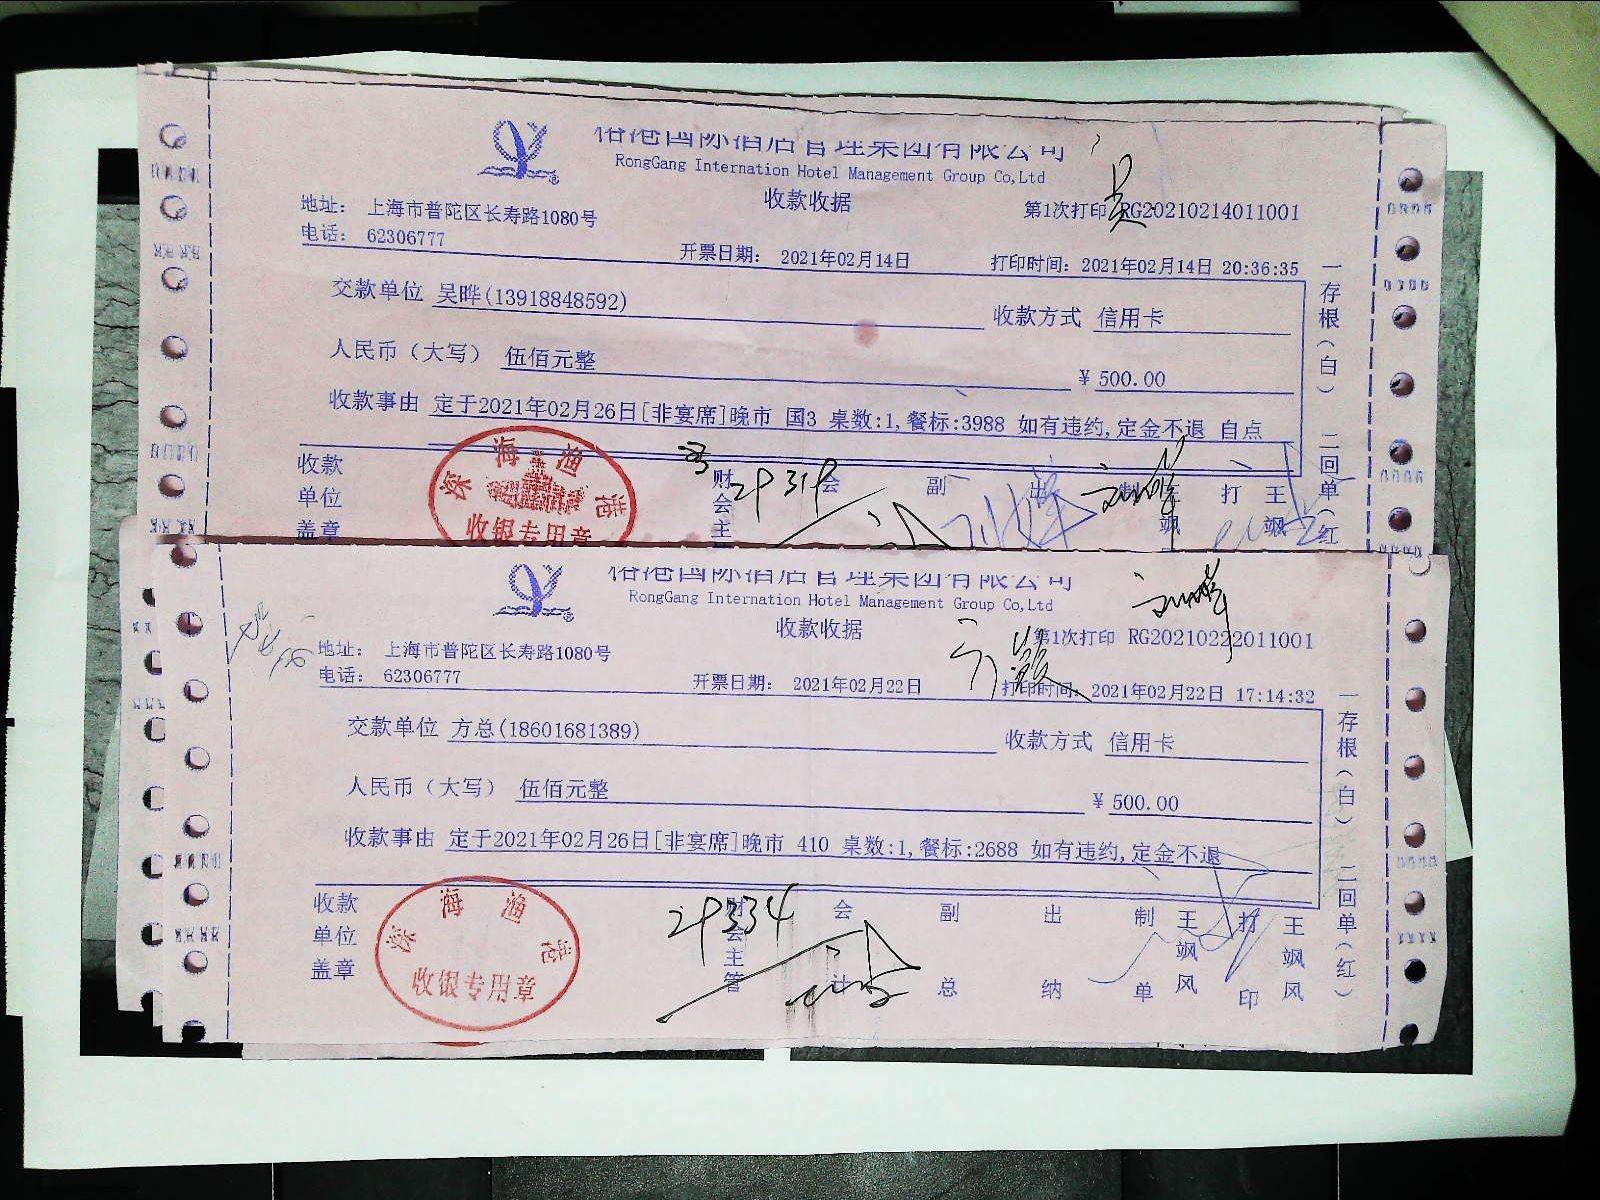 国际酒店管理集团有限公司
RongGang Internation Hotel Management Group Co,Ltd
收款收据
地址： 上海市普陀区长寿路1080号
第1次打印 RG20210214011001
电话： 62306777
开票日期： 2021年02月14日
打印时间：2021年02月14日 20:36:35
交款单位 吴晔(13918848592)
收款方式 信用卡
人民币（大写） 伍佰元整
¥ 500.00
收款事由 定于2021年02月26日[非宴席]晚市 国3 桌数:1,餐标:3988 如有违约,定金不退 自点
一存根（白） 二回单（红
收款单位盖章
深海渔港
收银专用章
财会主
会 副 出 制 王飒 打 王飒
国际酒店管理集团有限公司
RongGang Internation Hotel Management Group Co,Ltd
收款收据
地址： 上海市普陀区长寿路1080号
第1次打印 RG20210222011001
电话： 62306777
开票日期： 2021年02月22日
打印时间：2021年02月22日 17:14:32
交款单位 方总(18601681389)
收款方式 信用卡
人民币（大写） 伍佰元整
¥ 500.00
收款事由 定于2021年02月26日[非宴席]晚市 410 桌数:1,餐标:2688 如有违约,定金不退
一存根（白） 二回单（红）
收款单位盖章
深海渔港
收银专用章
财会主管 会计 副总 出纳 制单 王飒风 打印 王飒风